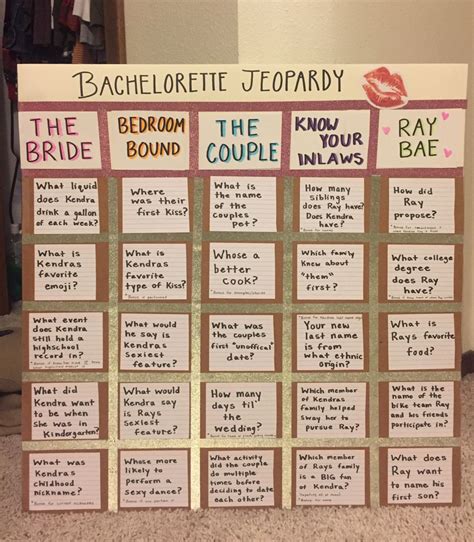 BACHELORETTE JEOPARDY
THE
BRIDE
BEDROOM
BOUND
THE
COUPLE
KNOW
YOUR
INLAWS
RAY
BAE
What liquid
does Kendra
drink a gallon
of each week?
Where
was their
first Kiss?
What is
the name
of the
couples
pet?
How many
siblings
does Ray have?
Does Kendra
have?
How did
Ray
propose?
What is
Kendras
favorite
emoji?
What is
Kendras
favorite
type of Kiss?
Whose a
better
cook?
Which family
knew about
"them"
first?
What college
degree
does Ray
have?
What event
does Kendra
still hold a
highschool
record in?
What would
he say is
Kendras
Sexiest
feature?
What was
the couples
first "unoffical"
date?
Your new
last name
is from
what ethnic
Origin?
What is
Rays favorite
food?
What did
Kendra want
to be when
She was in
Kindergarten?
What would
Kendra say
is Rays
Sexiest
feature?
How many
days til
the
wedding?
Which member
of Kendras
family helped
sway her to
pursue Ray?
What is the
name of the
bike team Ray
and his friends
participate in?
What was
Kendras
childhood
nickname?
Whose more
likely to
perform a
Sexy dance?
What activity
did the couple
do multiple
times before
deciding to date
each other?
Which member
of Rays family
is a BIG fan
of Kendra?
What does
Ray want
to name
his first son?